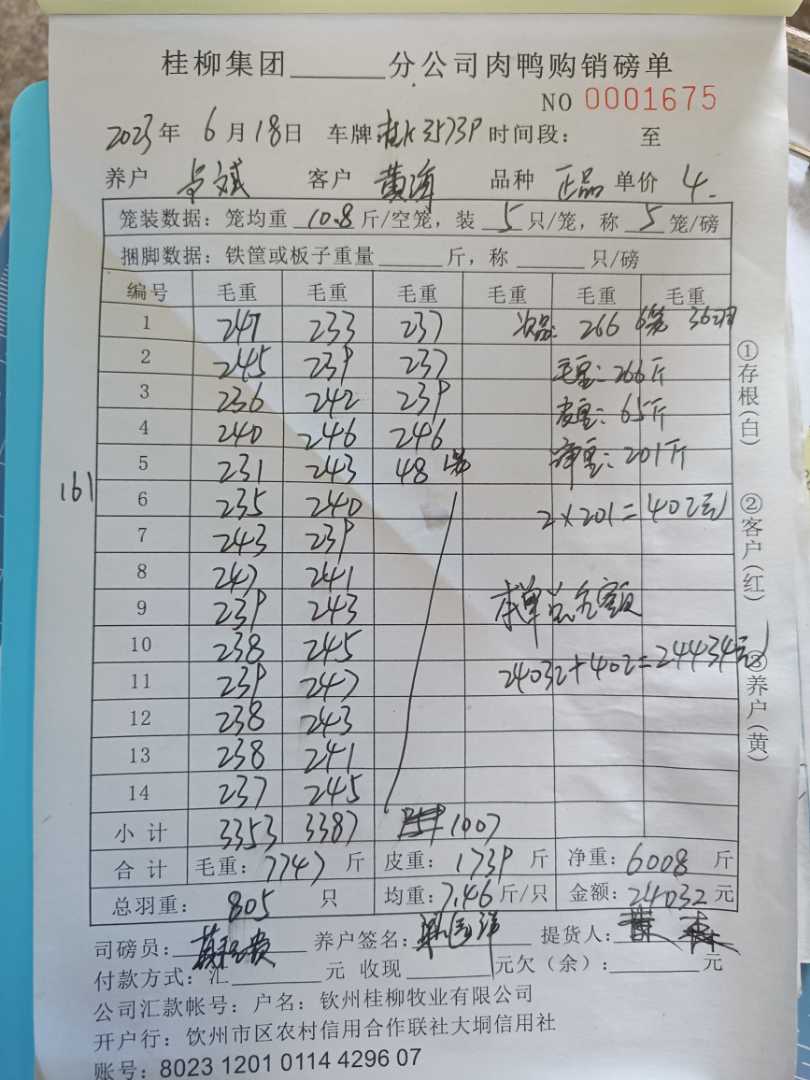 桂柳集团______分公司肉鸭购销磅单
NO 0001675
2023年 6月18日 车牌 3573P 时间段： 至
养户 客户 黄海 品种 正品 单价 4.
笼装数据：笼均重 10.8 斤/空笼，装 5 只/笼，称 5 笼/磅
捆脚数据：铁筐或板子重量______斤，称______只/磅
编号 毛重 毛重 毛重 毛重 毛重 毛重
1 247 233 237 次品：266 6笼 36羽
2 245 239 237 毛重：266斤
3 236 242 239 皮重：65斤
4 240 246 246 净重：201斤
5 231 243 48
161
6 235 240 2×201=402元
7 243 239
8 247 241
9 239 243 本单总金额
10 238 245 24032+402=24434元
11 239 247
12 238 243
13 238 241
14 237 245
小计 3353 3387 1007
合计 毛重：7747 斤 皮重：1739 斤 净重：6008 斤
总羽重： 805 只 均重：7.46 斤/只 金额：24032 元
司磅员： 养户签名： 提货人：
付款方式：汇______元 收现______元欠（余）：______元
公司汇款帐号：户名：钦州桂柳牧业有限公司
开户行：饮州市区农村信用合作联社大垌信用社
账号：8023 1201 0114 4296 07
①存根（白）
②客户（红）
③养户（黄）